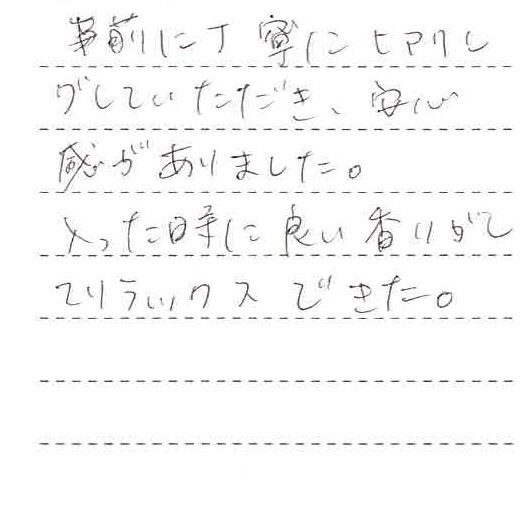 事前に丁寧にヒアリン
グしていただき、安心
感がありました。
入った時に良い香りがし
てリラックスできた。